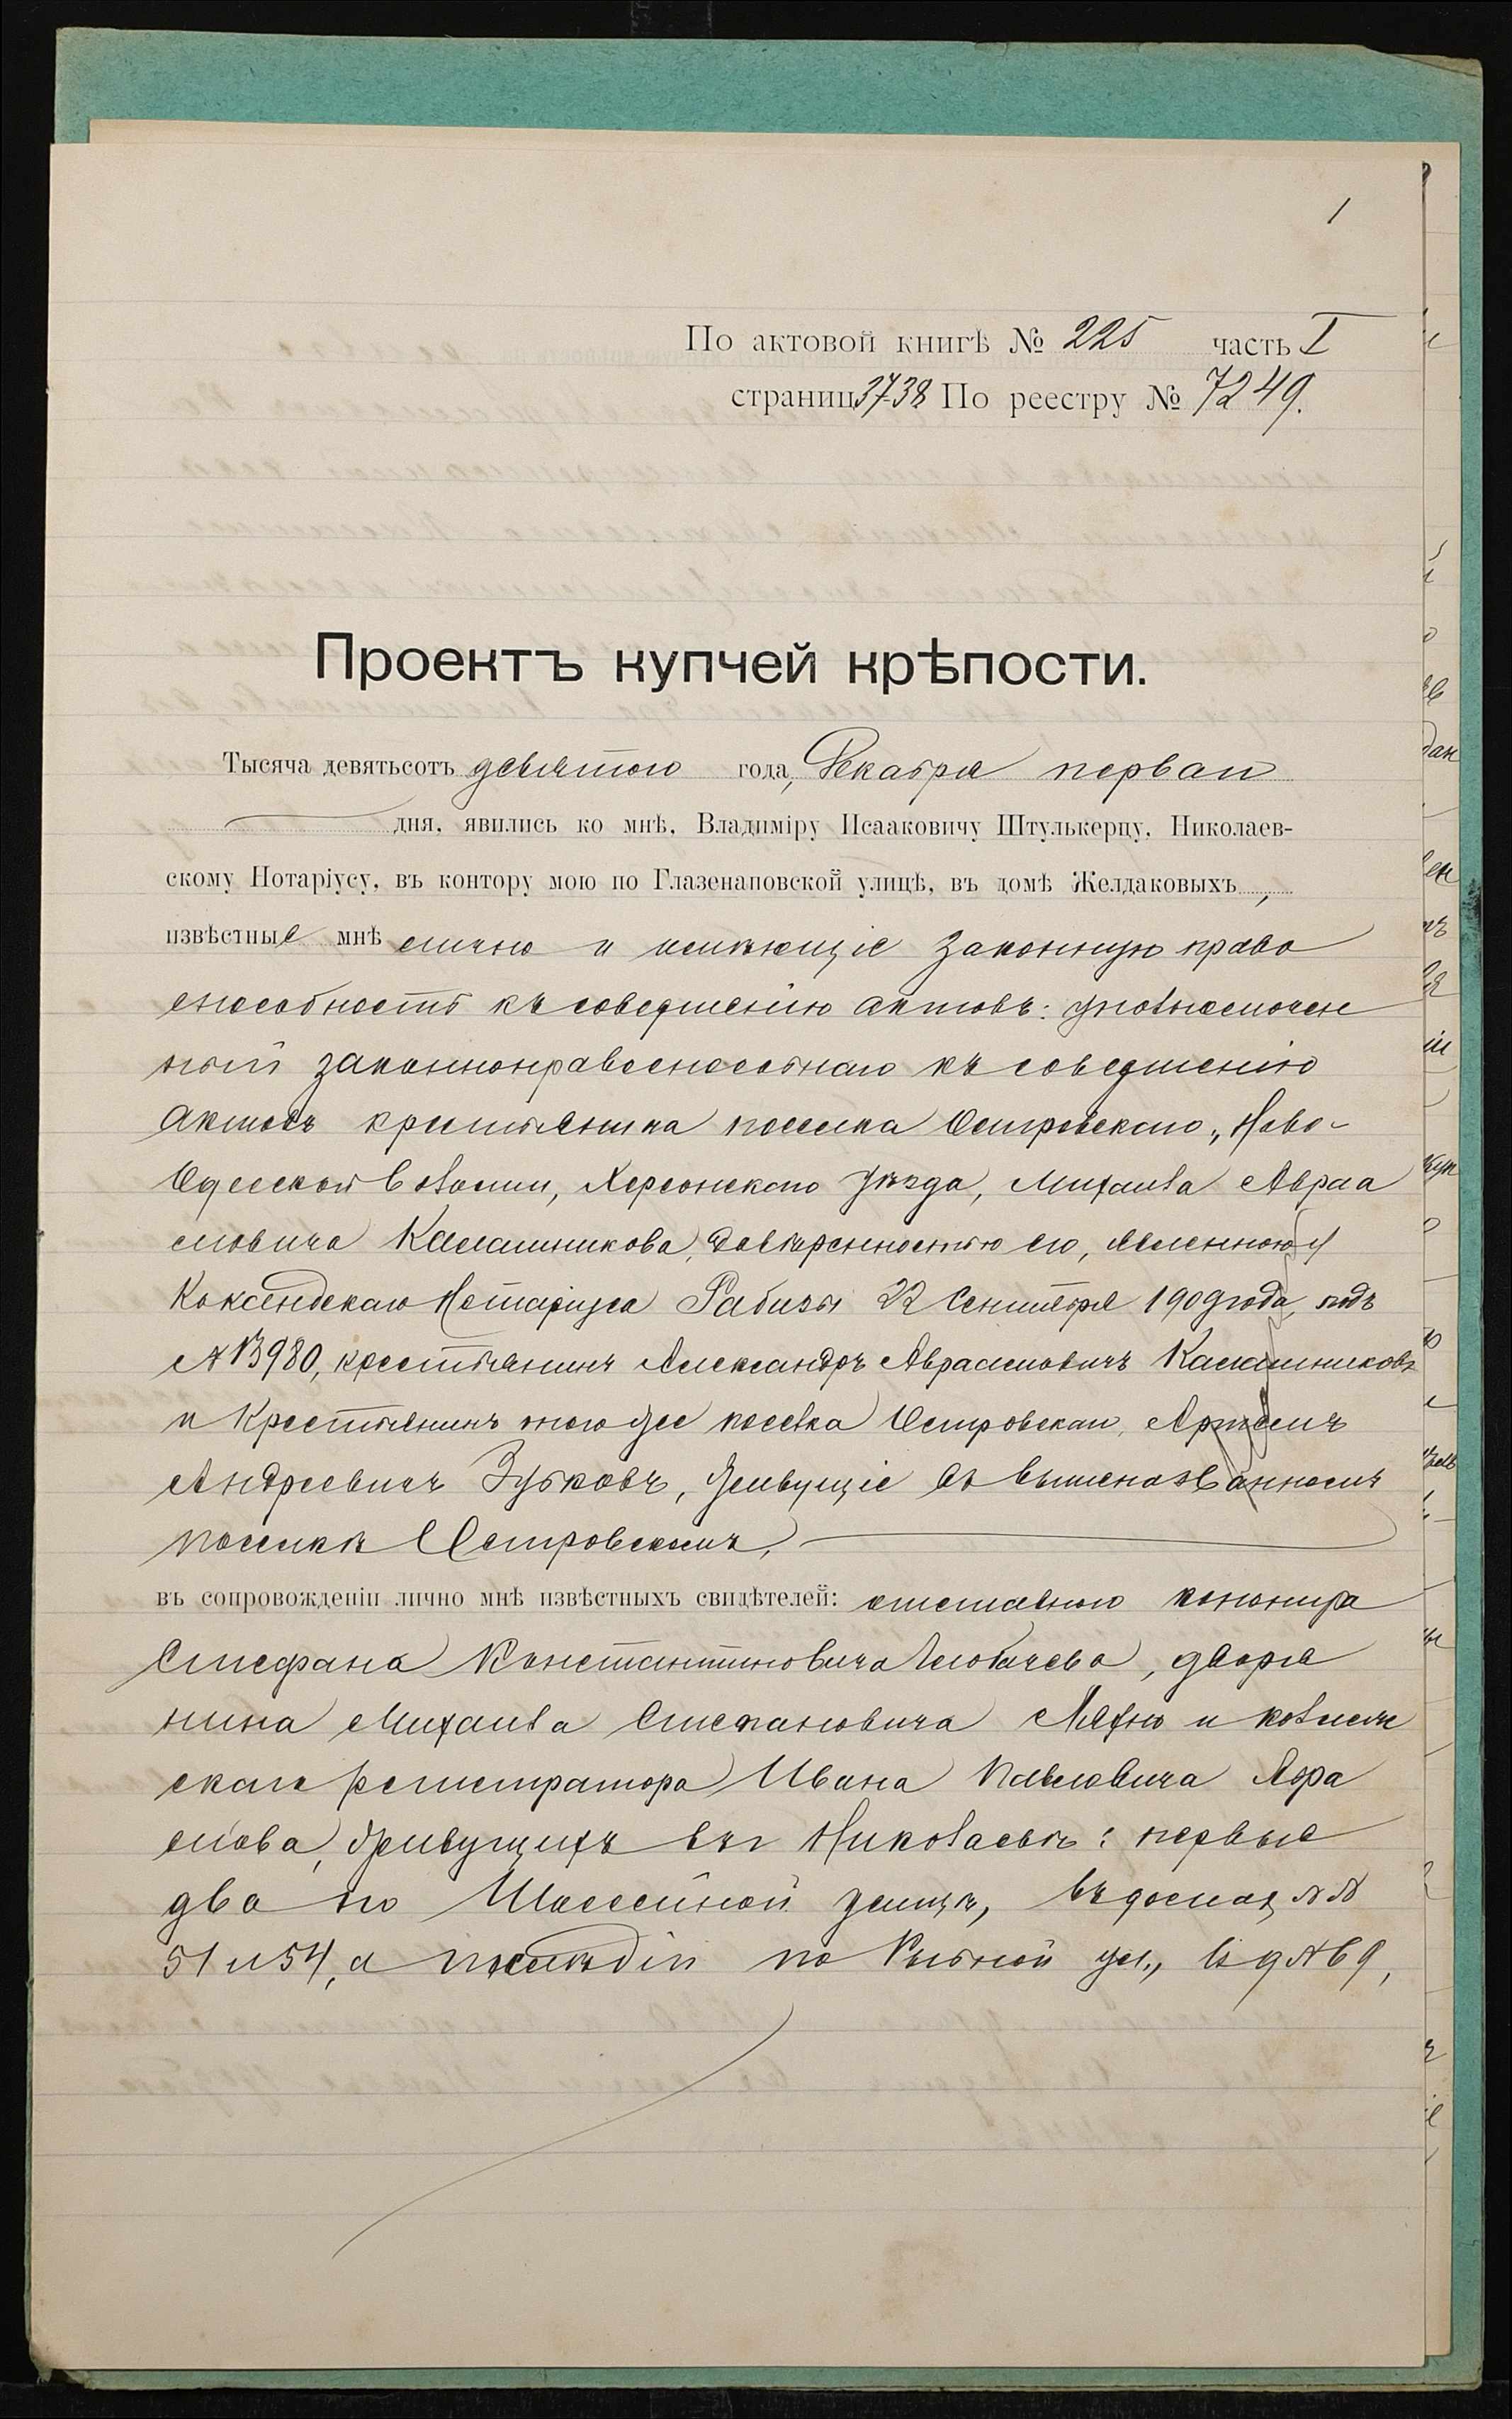 1
По актовой книгѣ № 225 часть I
страниц 37-38 По реестру № 7249.
Проектъ купчей крѣпости.
Тысяча девятьсотъ девятаго года, Декабря перваго
дня, явились ко мнѣ, Владиміру Исааковичу Штулькерцу, Николаев-
скому Нотаріусу, въ контору мою по Глазенаповской улицѣ, въ домѣ Желдаковыхъ,
извѣстные мнѣ лично и имѣющіе законную право
способность къ совершенію актовъ: уполномочен
ный законноправоспособнаго къ совершенію
актовъ крестьянина поселка Островскаго, Ново-
Одесской волости, Херсонскаго уѣзда, Михаила Авраа
мовича Калашникова, довѣренностью его, явленною у
Нотаріуса 22 Сентября 1909 года, подъ
№ 3980, крестьянинъ Александръ Авраамовичъ Калашниковъ
и крестьянинъ того же поселка Островскаго, Артемъ
Андреевичъ Зубковъ, живущіе въ вышеназванномъ
поселкѣ Островскомъ,
въ сопровожденіи лично мнѣ извѣстныхъ свидѣтелей: отставного канонира
Стефана Константиновича дворя
нина Михаила Степановича и коллеж
скаго регистратора Ивана Павловича
живущихъ въ г Николаевѣ: первые
два по Шоссейной улицѣ, въ домахъ №№
51 и 54, а послѣдній по ул., въ д № 69,